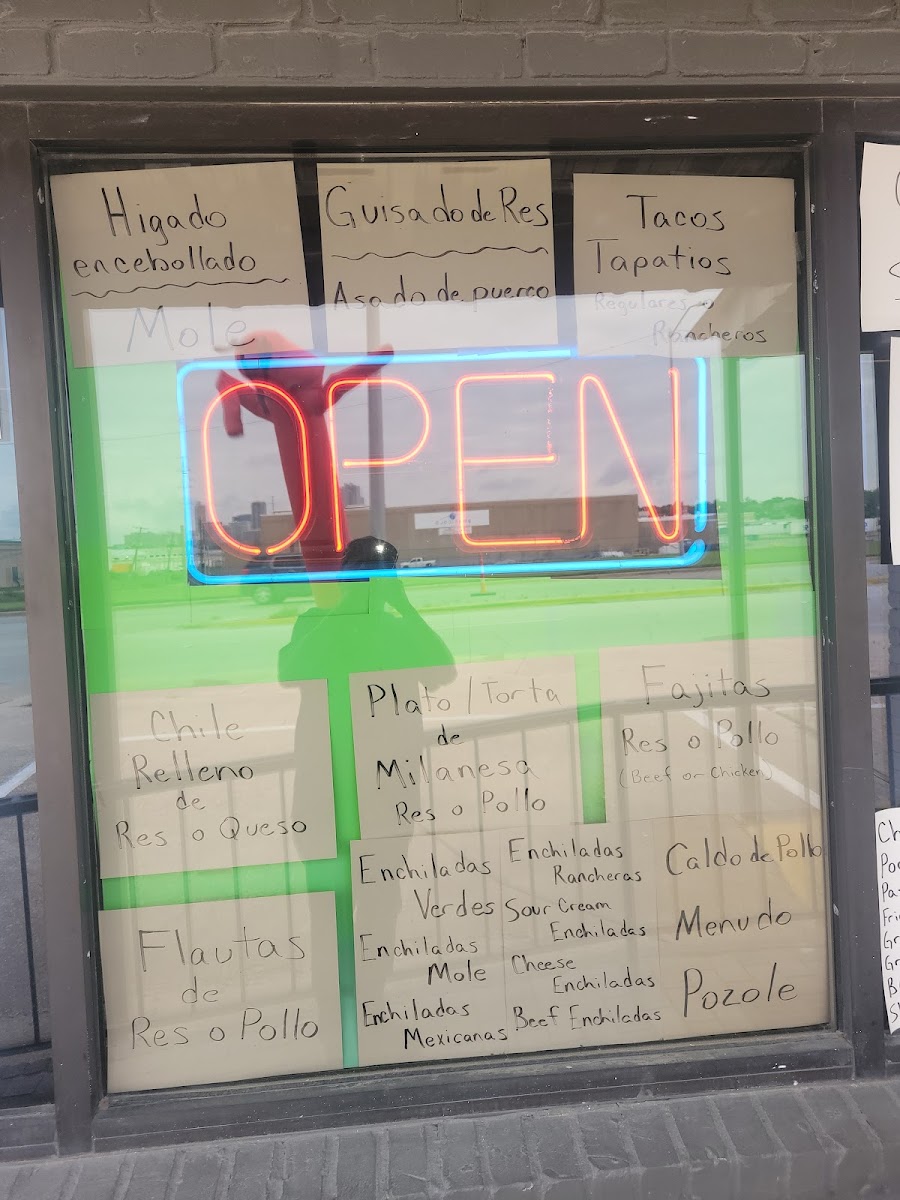 Higado
encebollado
Mole
Guisado de Res
Asado de puerco
Tacos
Tapatios
Regulares o
Rancheros
OPEN
Chile
Relleno
de
Res o Queso
Plato/Torta
de
Milanesa
Res o Pollo
Fajitas
Res o Pollo
(Beef or Chicken)
Flautas
de
Res o Pollo
Enchiladas
Verdes
Enchiladas
Mole
Enchiladas
Mexicanas
Enchiladas
Rancheras
Sour Cream
Enchiladas
Cheese
Enchiladas
Beef Enchiladas
Caldo de Pollo
Menudo
Pozole